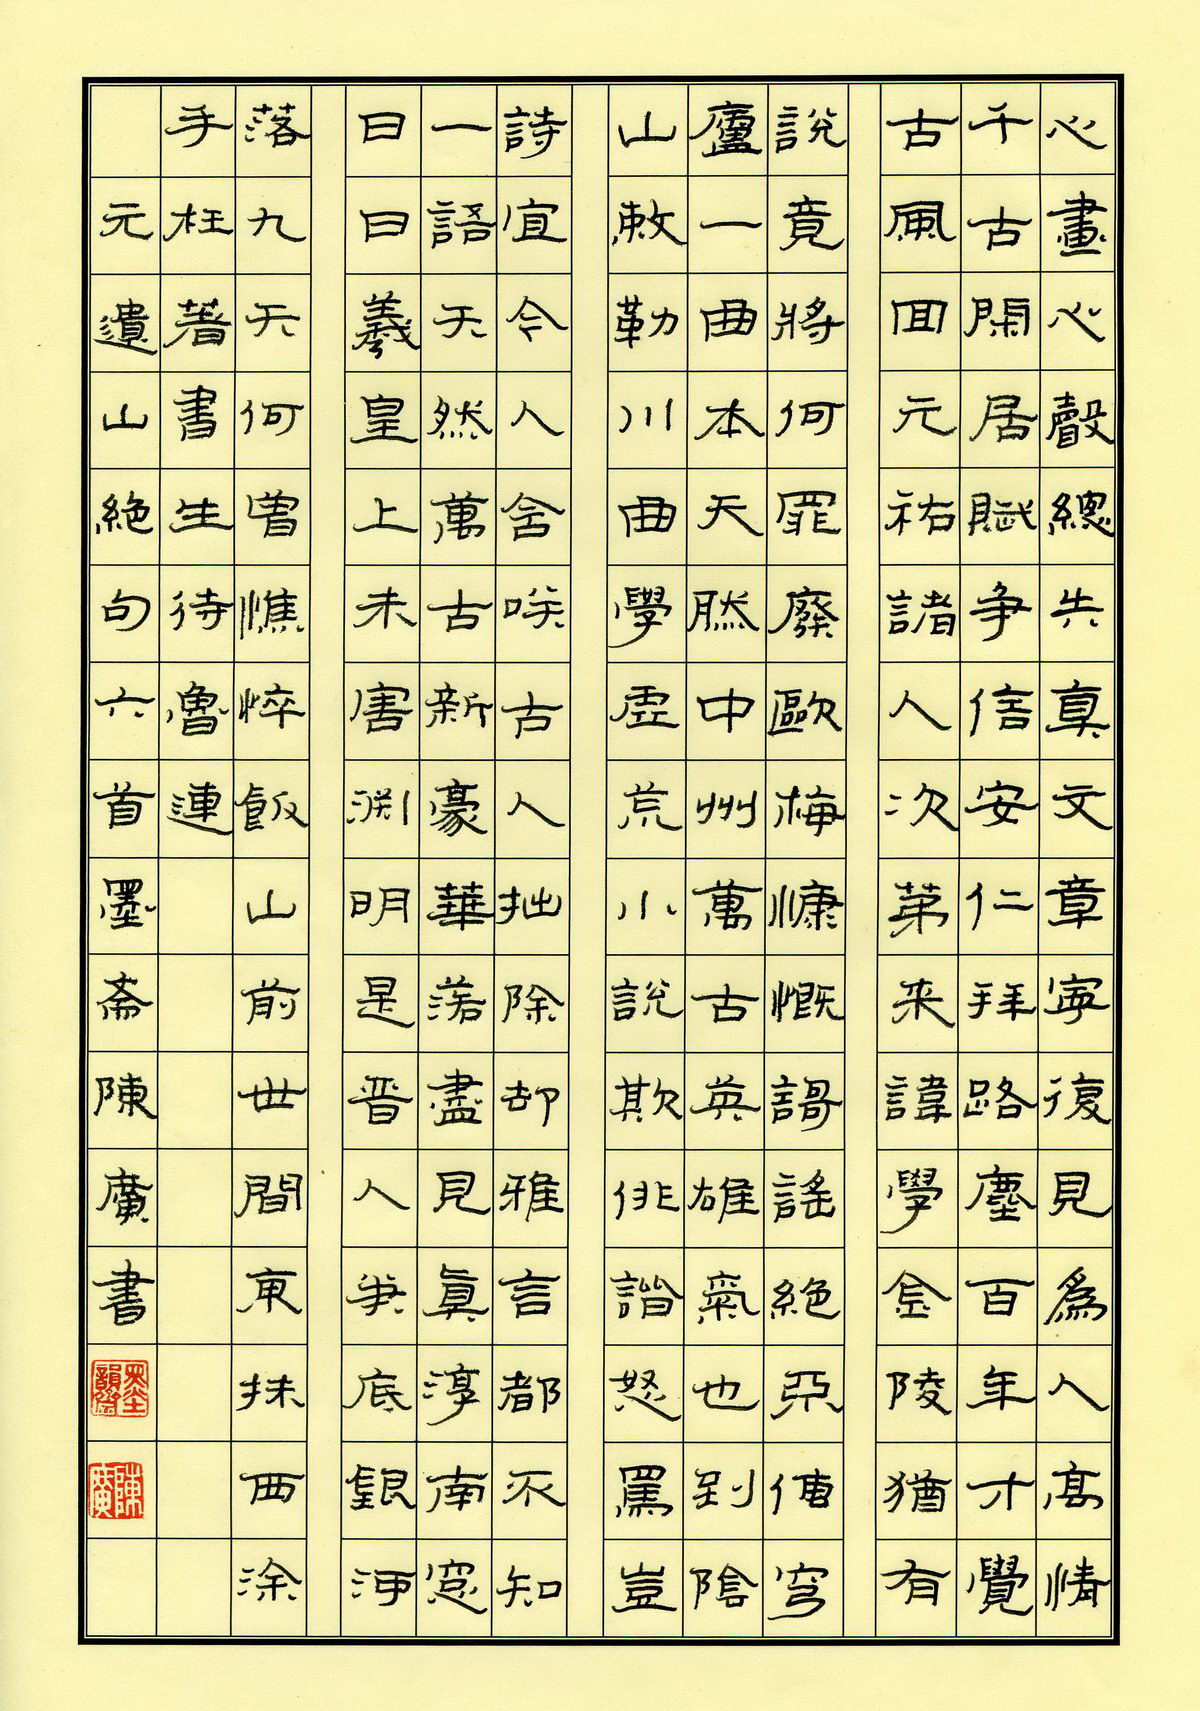 心畫心聲總失真文章寧復見爲人高情
千古閑居賦争信安仁拜路塵百年才覺
古風回元祐諸人次第来諱學金陵猶有
説竟將何罪廢歐梅慷慨謌謠絕不傳穹
廬一曲本天然中州萬古英雄氣也到陰
山敕勒川曲學虛荒小説欺俳諧怒罵豈
詩宜今人合咲古人拙除却雅言都不知
一語天然萬古新豪華落盡見真淳南窓
日日羲皇上未害渊明是晋人筆底銀河
落九天何曾憔悴飯山前世間東抹西涂
手枉著書生待魯連
元遺山絕句六首墨斎陳廣書
陳廣